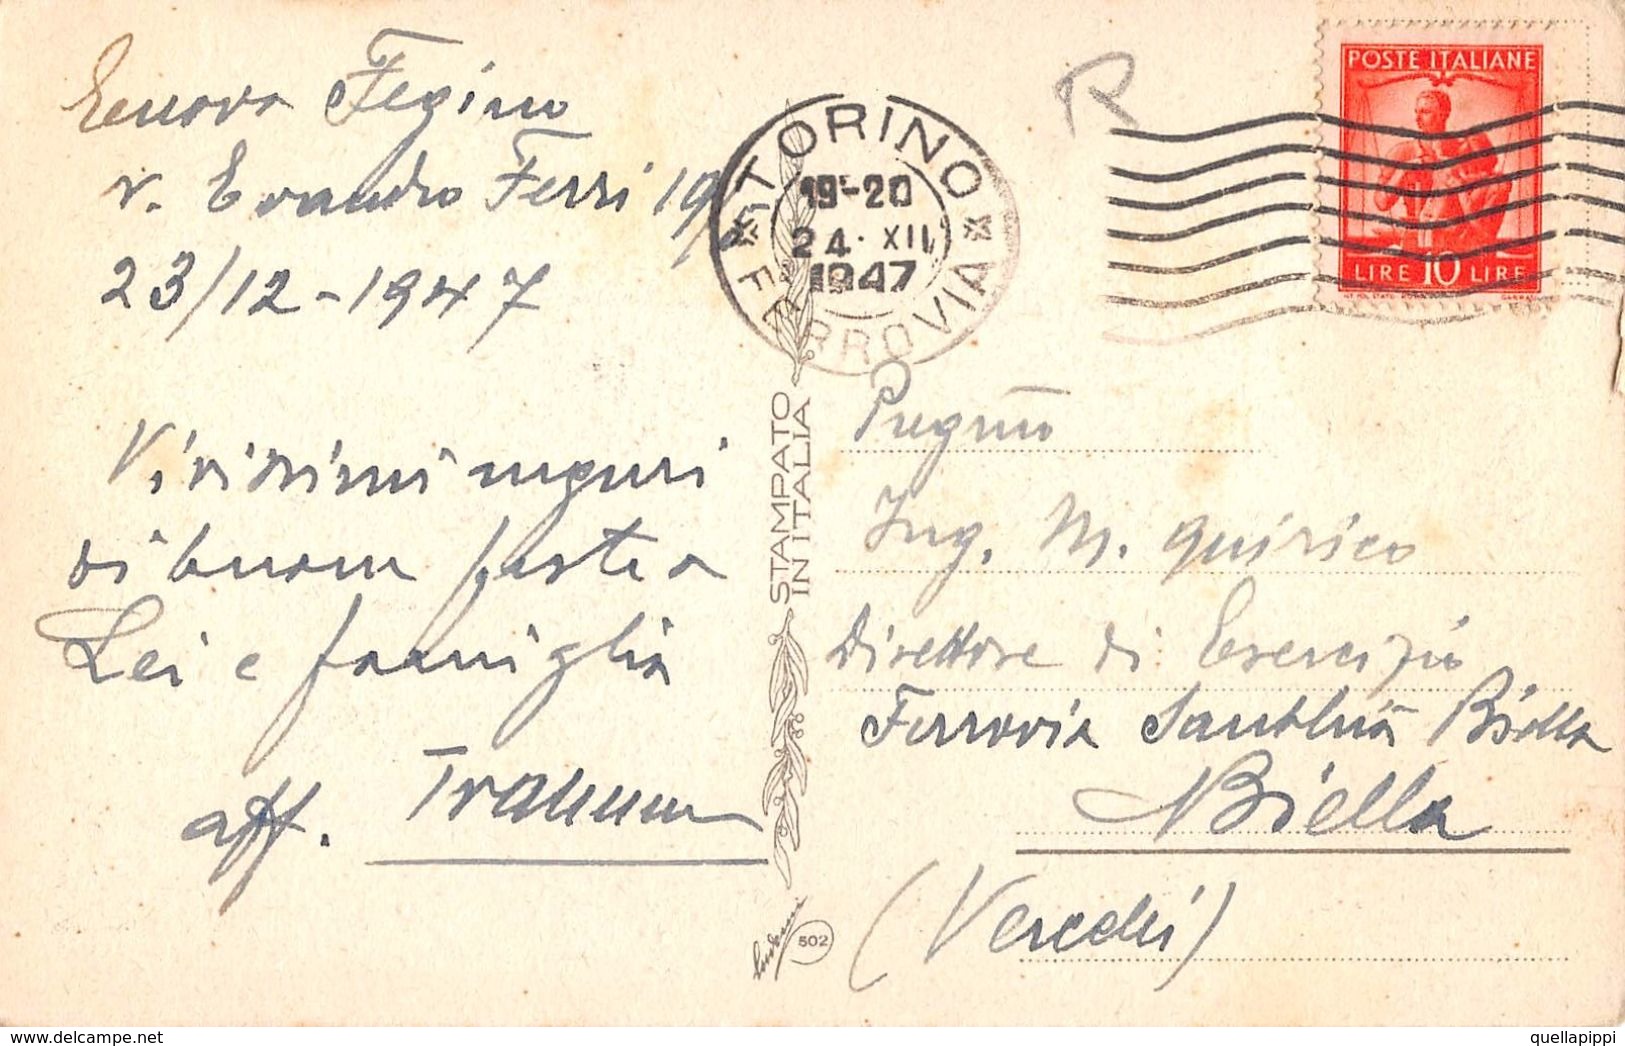 Genova Fegino
v. Evandro Ferri 19
23/12-1947
Vivissimi auguri
di buone feste a
Lei e famiglia
aff.
TORINO
FERROVIA
19-20
24. XII
1947
R
POSTE ITALIANE
LIRE 10 LIRE
STAMPATO
IN ITALIA
502
Pregmo
Ing. M. Quirico
Direttore di Esercizio
Ferrovia Santhià Biella
Biella
(Vercelli)
delcampe.net
quellapippi